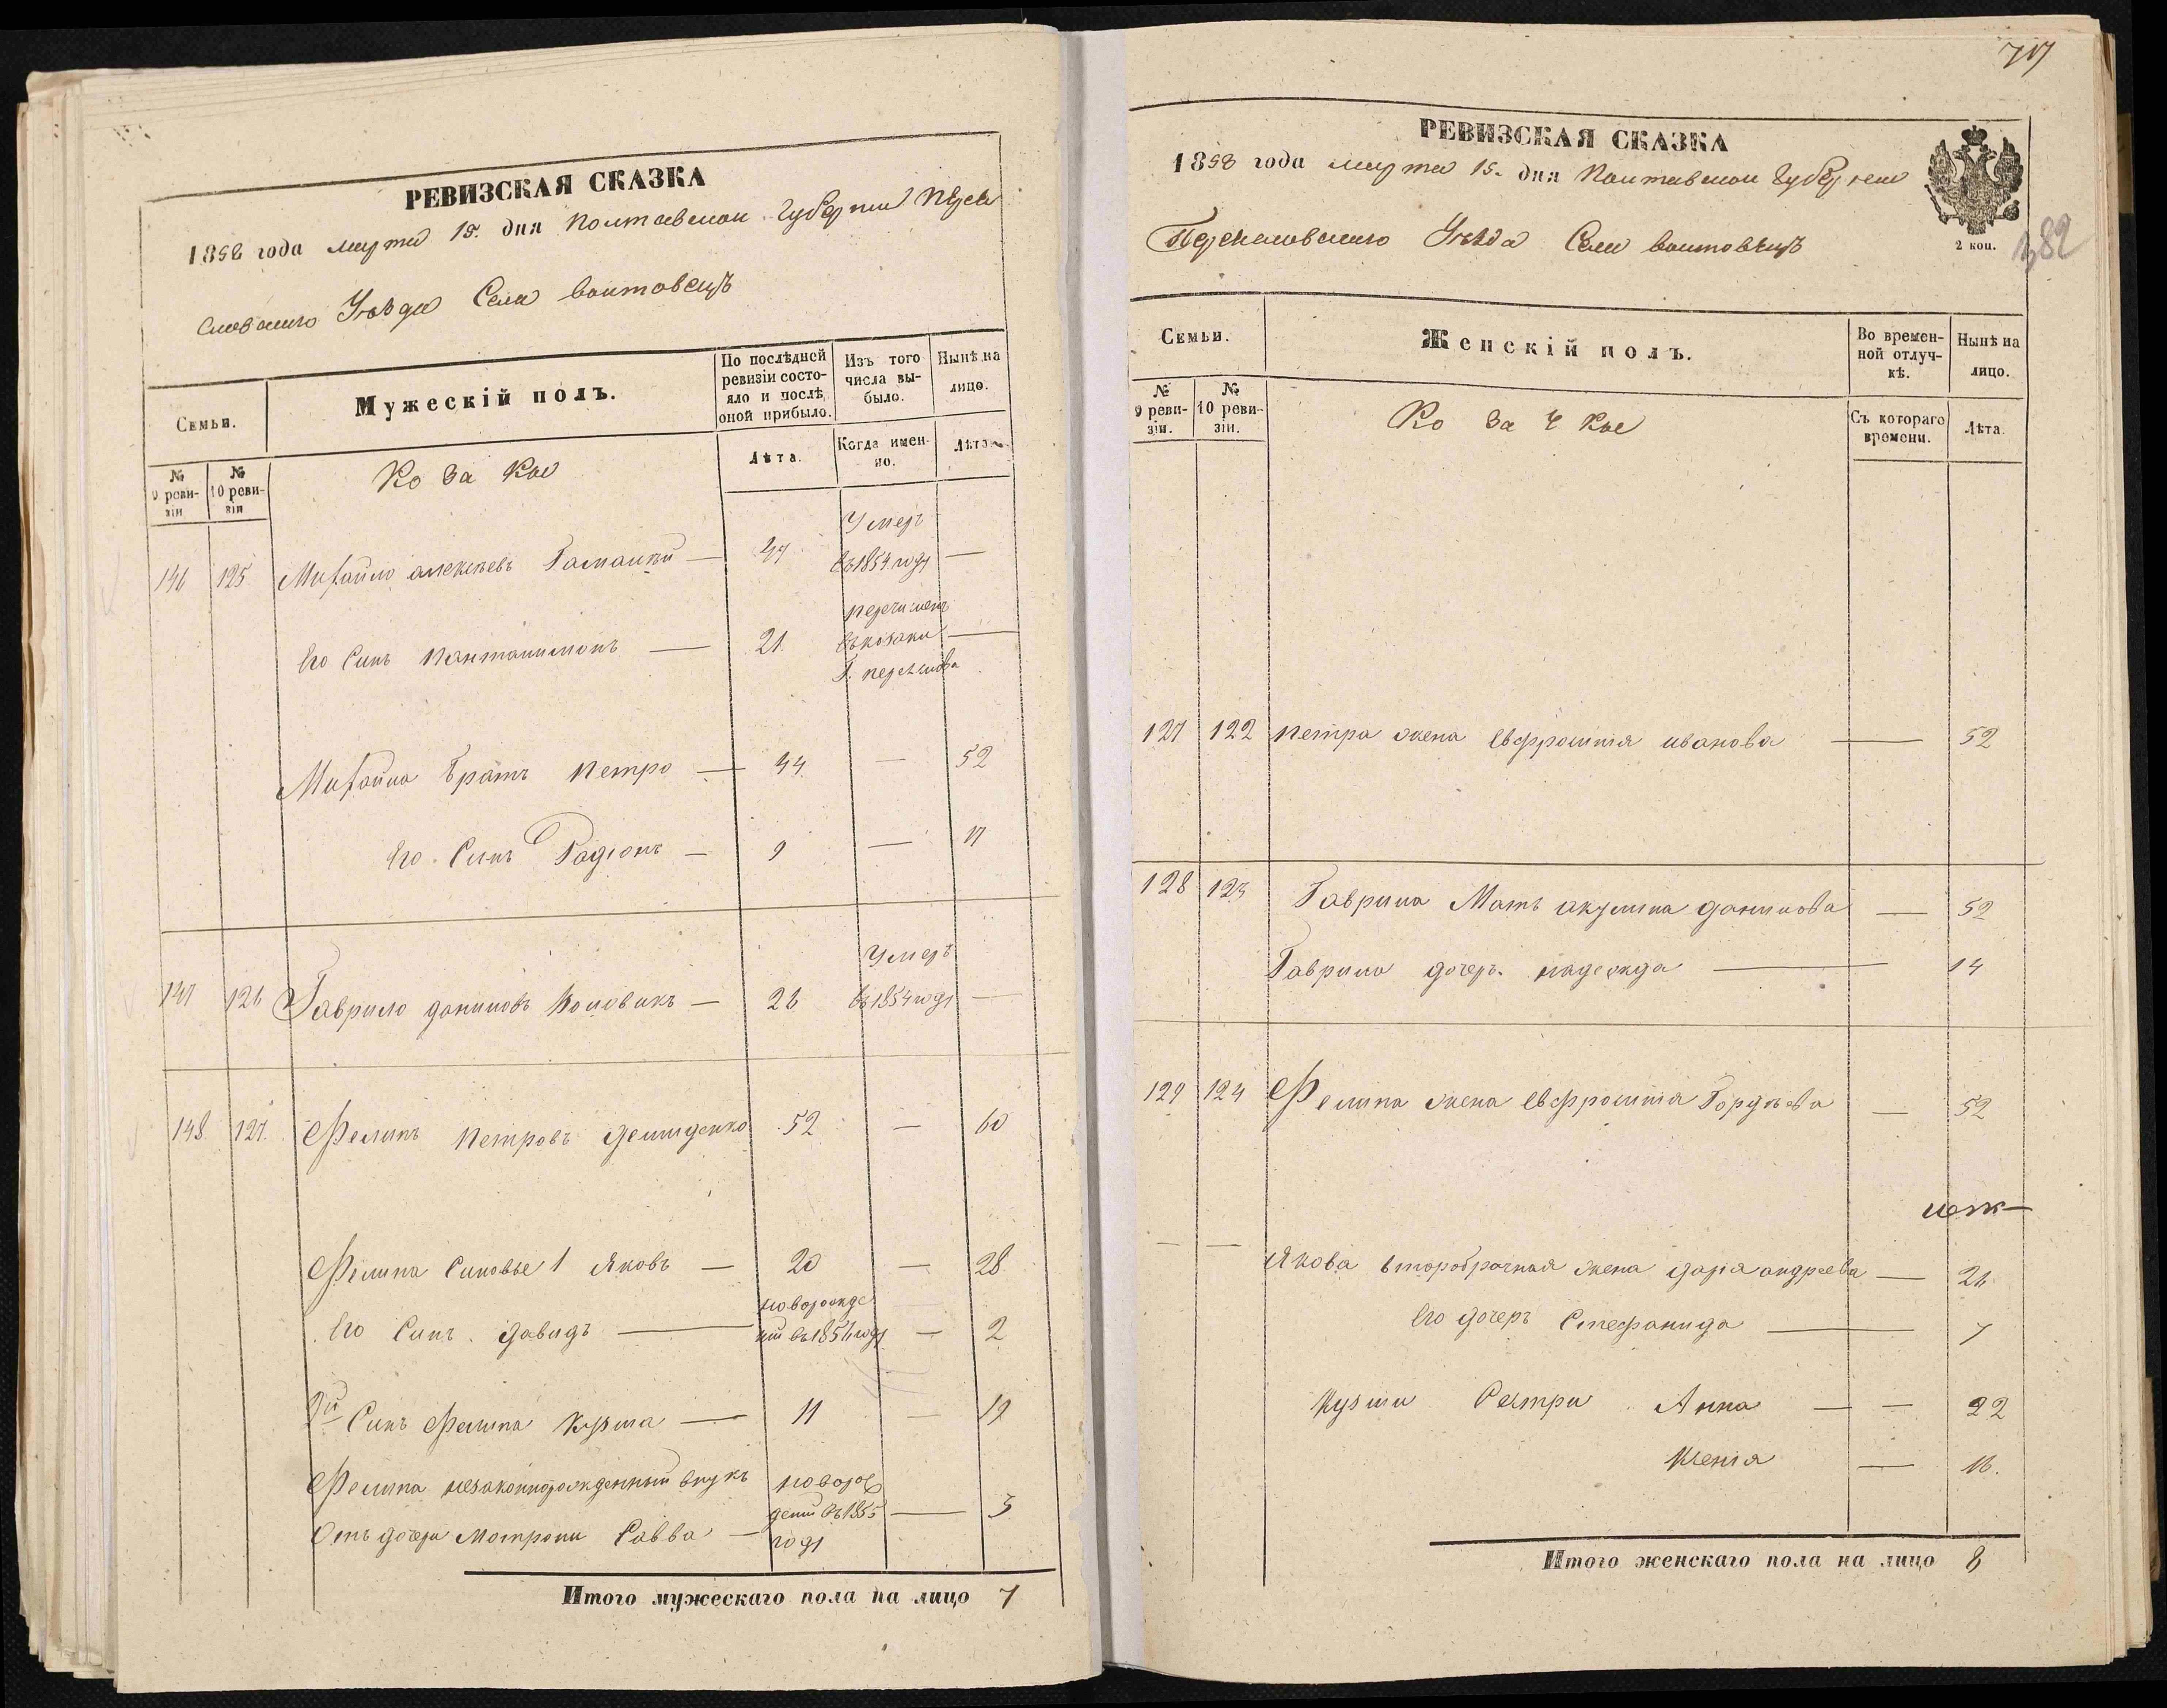 РЕВИЗСКАЯ СКАЗКА
1858 года марта 15. дня Полтавской Губерніи Пере
яславского Уѣзда Села Воитовецъ
Семьи.
Мужескій полъ.
По послѣдней ревизіи состояло и послѣ оной прибыло.
Изъ того числа выбыло.
Нынѣ на лицо.
№ 9 ревизіи
№ 10 ревизіи
Козаки
Лѣта.
Когда именно.
Лѣта
146 125 Михайло алексѣевъ — 47 Умеръ въ 1854 году —
Его Синъ Пантилимонъ — 21. перечисленъ въ козаки Г. переяслова —
Михайла Братъ Петро — 44. — 52
Его Синъ Радіонъ — 9 — 17
147 126 Гаврило даниловъ — 26 Умеръ въ 1854 году —
148 127. Филипъ Петровъ демиденко 52 — 60
Филипа Синовье 1 Яковъ — 20 — 28
Его Синъ давидъ — новорожденій въ 1856 году — 2
2й Синъ Филипа Кузма — 11 — 19
Филипа незаконнорожденный внукъ
Отъ дочери Мотрони Савва — новорожденій въ 1855 году — 3
Итого мужескаго пола на лицо 7
РЕВИЗСКАЯ СКАЗКА
1858 года марта 15. дня Полтавской Губерніи
Переяславского Уѣзда Села Воитовецъ
2 коп.
382
Семьи.
Женскій полъ.
Во временной отлучкѣ.
Нынѣ на лицо.
№ 9 ревизіи.
№ 10 ревизіи.
Козачки
Съ котораго времени.
Лѣта.
127 122 Петра жена Евфросинія иванова — 52
128 123 Гаврила Мать акулина данилова — 52
Гаврила дочерь надежда — 14
129 124 Филипа жена Евфросинія Гордѣева — 52
— — Якова второбрачная жена дарія андреева — 26
Его дочеръ Стефанида — 7
Кузми Сестри Анна — — 22
Ксенія — 16.
Итого женскаго пола на лицо 8